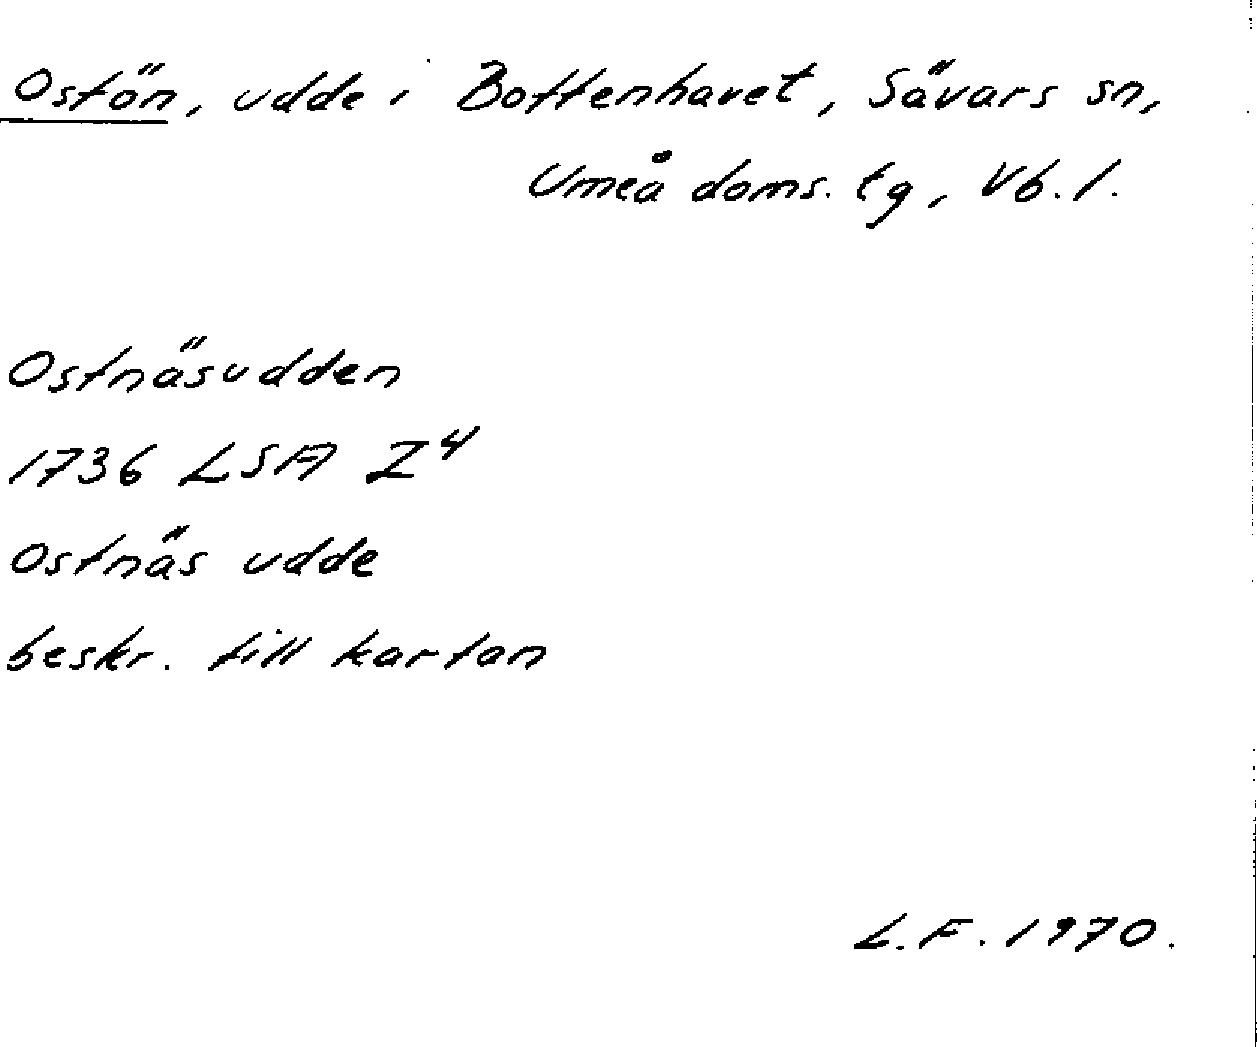 Ostön, udde i Bottenhavet, Sävars sn,
Umeå doms. tg, Vb. l.
Ostnäsudden
1736 LSA Z⁴
Ostnäs udde
beskr. till kartan
L.F. 1970.